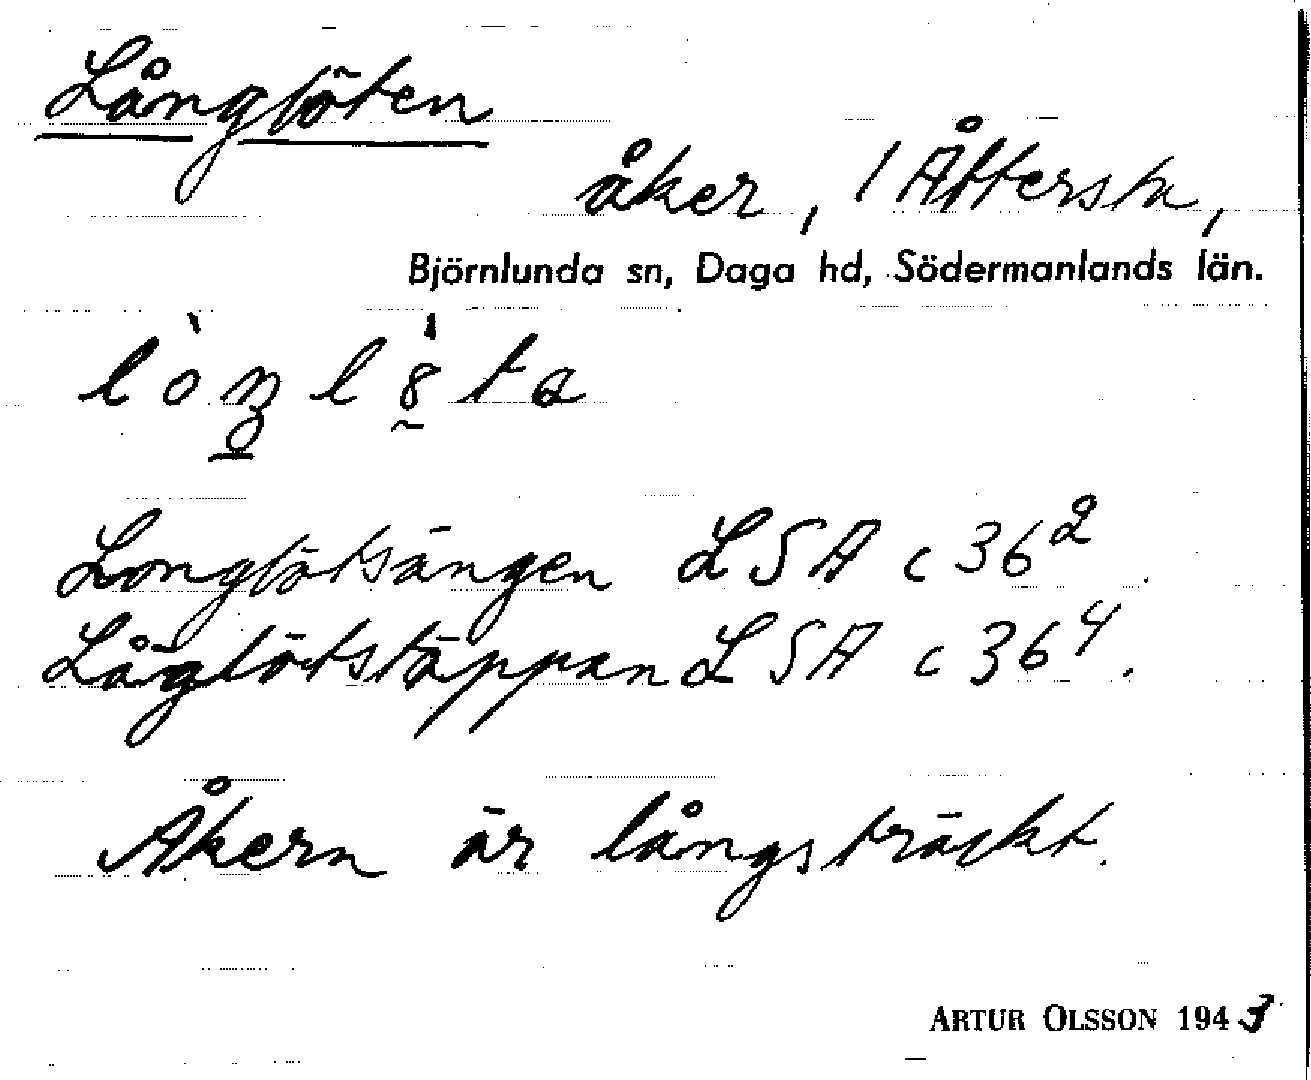 Långlöten
åker, 1 Åttersta,
Björnlunda sn, Daga hd, Södermanlands län.
Longlötsängen LSA c 36²
Låglötstäppan LSA c 36⁴.
Åkern är långsträckt.
ARTUR OLSSON 1943